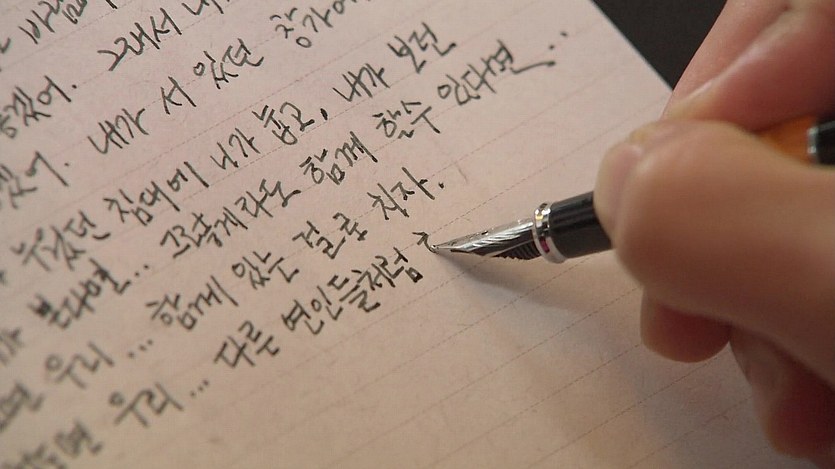 바람
했어. 그래서 내
했어. 내가 서 있던 창가에
누웠던 침대에 니가 눕고, 내가 보던
가 본다면... 그렇게라도 함께 할수 있다면..
우리... 함께 있는 걸로 치자.
우리... 다른 연인들처럼